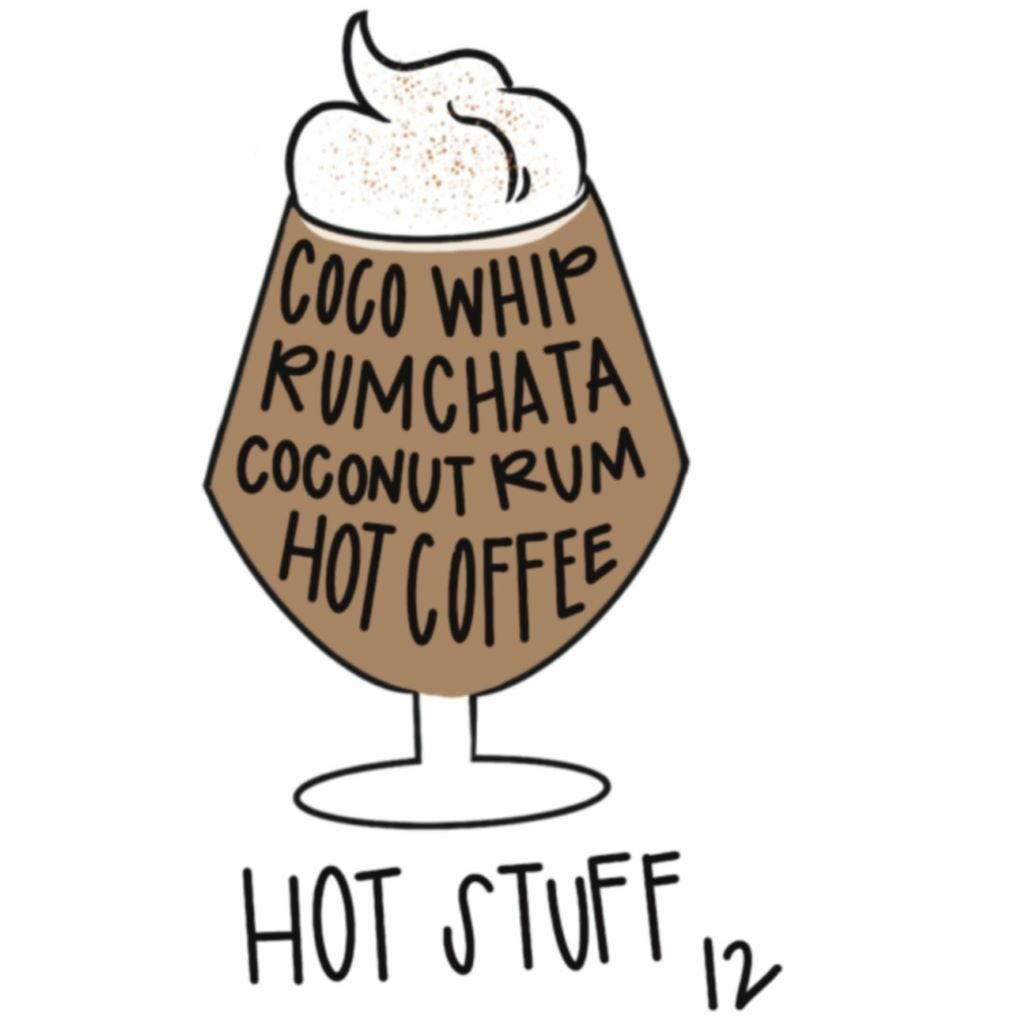 COCO WHIP
RUMCHATA
COCONUT RUM
HOT COFFEE
HOT STUFF 12